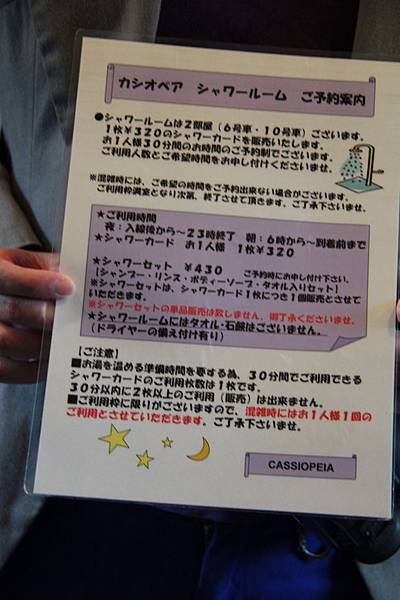 カシオペア シャワールーム ご予約案内
●シャワールームは２部屋（６号車・１０号車）ございます。
１枚￥３２０のシャワーカードを販売いたします。
お１人様３０分間のお時間のご予約制でございます。
ご利用人数とご希望時間をお申し付けくださいませ。
※混雑時には、ご希望の時間をご予約出来ない場合がございます。
ご利用枠満室となり次第、終了させて頂きます。ご了承下さいませ。
★ご利用時間
夜：入線後から～２３時終了 朝：６時から～到着前まで
★シャワーカード お１人様 １枚￥３２０
★シャワーセット ￥４３０ ご予約時にお申し付け下さい。
［シャンプー・リンス・ボディーソープ・タオル入りセット］
※シャワーセットは、シャワーカード１枚につき１個販売とさせて
いただきます。
※シャワーセットの単品販売は致しません、御了承くださいませ。
★シャワールームにはタオル・石鹸はございません。
（ドライヤーの備え付け有り）
【ご注意】
■お湯を温める準備時間を要する為、３０分間でご利用できる
シャワーカードのご利用枚数は１枚です。
３０分以内に２枚以上のご利用（販売）は出来ません。
■ご利用枠に限りがございますので、混雑時にはお１人様１回の
ご利用とさせていただきます。ご了承下さいませ。
CASSIOPEIA